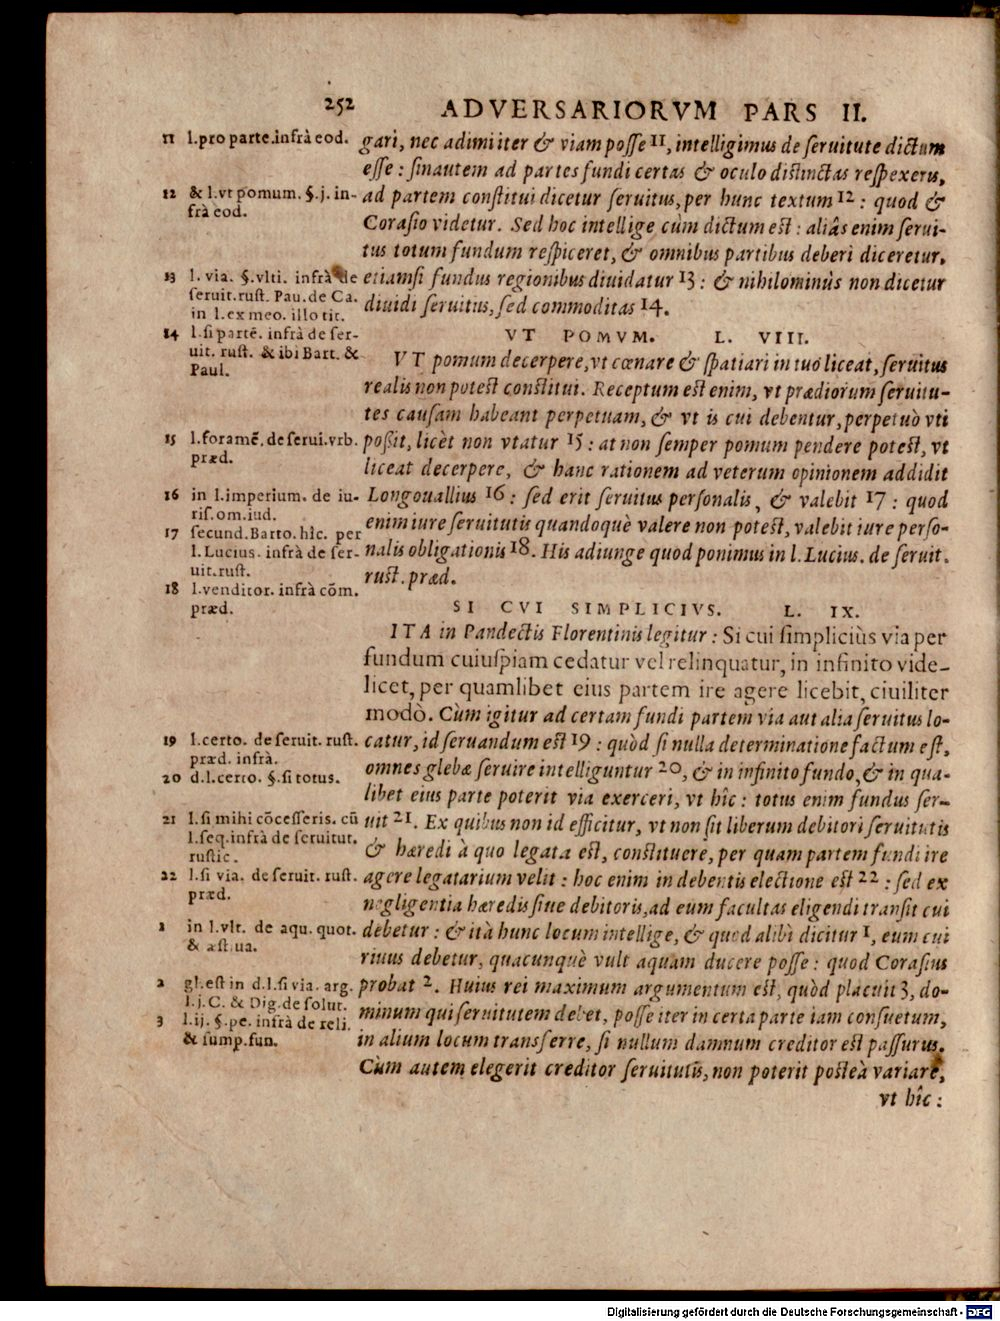 252
ADVERSARIORVM PARS II.
gari, nec adimi iter & viam posse 11, intelligimus de seruitute dictum
esse : sinautem ad partes fundi certas & oculo distinctas respexeris,
ad partem constitui dicetur seruitus, per hunc textum 12 : quod &
Corasio videtur. Sed hoc intellige cùm dictum est : aliâs enim serui-
tus totum fundum respiceret, & omnibus partibus deberi diceretur,
etiamsi fundus regionibus diuidatur 13 : & nihilominùs non dicetur
diuidi seruitus, sed commoditas 14.
11 l. pro parte. infrà eod.
12 & l. vt pomum. §. j. in-
frà eod.
13 l. via. §. vlti. infrà de
seruit. rust. Pau. de Ca.
in l. ex meo. illo tit.
14 l. si partē. infrà de ser-
uit. rust. & ibi Bart. &
Paul.
VT POMVM. L. VIII.
VT pomum decerpere, vt cœnare & spatiari in tuo liceat, seruitus
realis non potest constitui. Receptum est enim, vt prædiorum seruitu-
tes causam habeant perpetuam, & vt is cui debentur, perpetuò vti
possit, licèt non vtatur 15 : at non semper pomum pendere potest, vt
liceat decerpere, & hanc rationem ad veterum opinionem addidit
Longouallius 16 : sed erit seruitus personalis, & valebit 17 : quod
enim iure seruitutis quandoquè valere non potest, valebit iure perso-
nalis obligationis 18. His adiunge quod ponimus in l. Lucius. de seruit.
rust. præd.
15 l. foramē. de serui. vrb.
præd.
16 in l. imperium. de iu-
ris. om. iud.
17 secund. Barto. hîc. per
l. Lucius. infrà de ser-
uit. rust.
18 l. venditor. infrà cōm.
præd.
SI CVI SIMPLICIVS. L. IX.
ITA in Pandectis Florentinis legitur : Si cui simpliciùs via per
fundum cuiuspiam cedatur vel relinquatur, in infinito vide-
licet, per quamlibet eius partem ire agere licebit, ciuiliter
modò. Cùm igitur ad certam fundi partem via aut alia seruitus lo-
catur, id seruandum est 19 : quòd si nulla determinatione factum est,
omnes glebæ seruire intelliguntur 20, & in infinito fundo, & in qua-
libet eius parte poterit via exerceri, vt hîc : totus enim fundus ser-
uit 21. Ex quibus non id efficitur, vt non sit liberum debitori seruitutis
& hæredi à quo legata est, constituere, per quam partem fundi ire
agere legatarium velit : hoc enim in debentis electione est 22 : sed ex
negligentia hæredis siue debitoris, ad eum facultas eligendi transit cui
debetur : & ità hunc locum intellige, & quod alibì dicitur 1, eum cui
riuus debetur, quacunquè vult aquam ducere posse : quod Corasius
probat 2. Huius rei maximum argumentum est, quòd placuit 3, do-
minum qui seruitutem debet, posse iter in certa parte iam consuetum,
in alium locum transferre, si nullum damnum creditor est passurus.
Cùm autem elegerit creditor seruitutis, non poterit posteà variare,
vt hîc :
19 l. certo. de seruit. rust.
præd. infrà.
20 d. l. certo. §. si totus.
21 l. si mihi cōcesseris. cū
l. seq. infrà de seruitut.
rustic.
22 l. si via. de seruit. rust.
præd.
1 in l. vlt. de aqu. quot.
& æstiua.
2 gl. est in d. l. si via. arg.
l. j. C. & Dig. de solut.
3 l. ij. §. pe. infrà de reli.
& sump. fun.
Digitalisierung gefördert durch die Deutsche Forschungsgemeinschaft - DFG